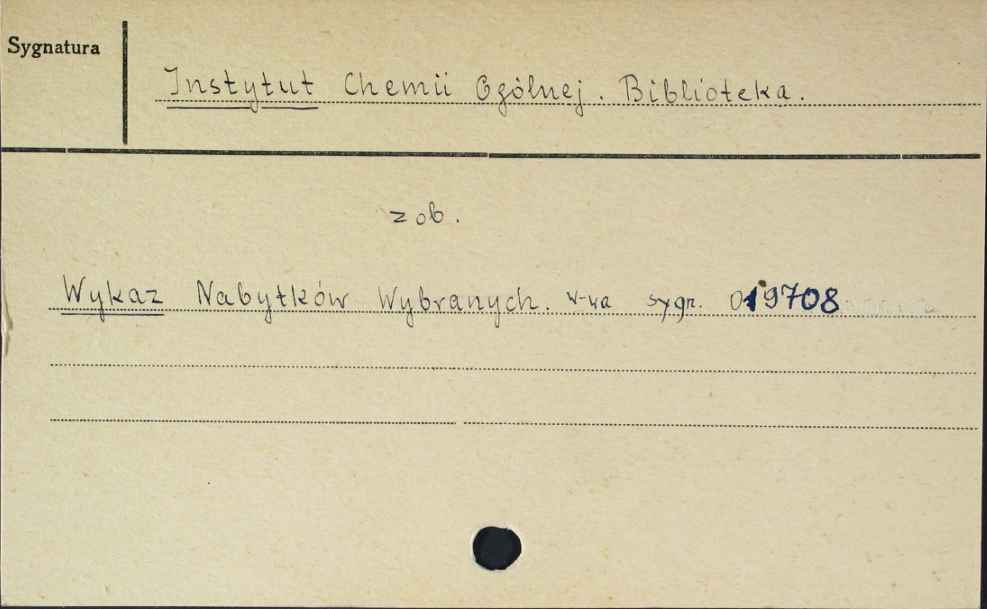 Sygnatura
Instytut Chemii Ogólnej. Biblioteka.
zob.
Wykaz Nabytków Wybranych. W-wa sygn. 019708